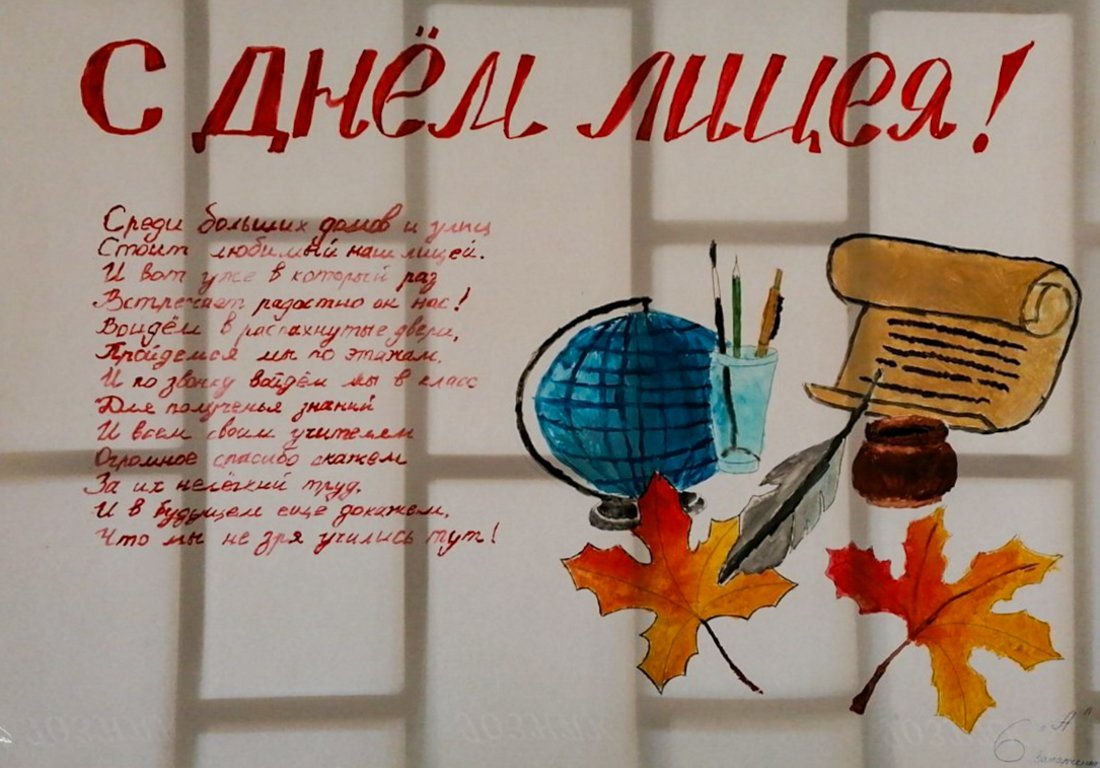 С ДНЁМ ЛИЦЕЯ!
Среди больших домов и улиц
Стоит любимый наш лицей.
И вот уже в который раз
Встречает радостно он нас!
Войдём в распахнутые двери,
Пройдемся мы по этажам.
И по звонку войдём мы в класс
Для полученья знаний
И всем своим учителям
Огромное спасибо скажем
За их нелёгкий труд.
И в будущем еще докажем,
Что мы не зря учились тут!
6 "А"